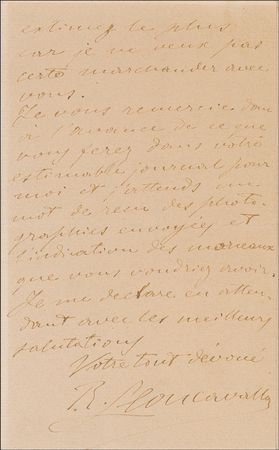 estimez le plus
car je ne veux pas
certe marchander avec
vous.
Je vous remercie donc
a l'avance de ce que
vous ferez dans votre
estimable journal pour
moi et j'attends un
mot de reçu des photo-
graphies envoyées et
l'indication des morceaux
que vous voudriez avoir.
Je me declare en atten
dant avec les meilleurs
salutations
Votre tout dévoué
R. Leoncavallo